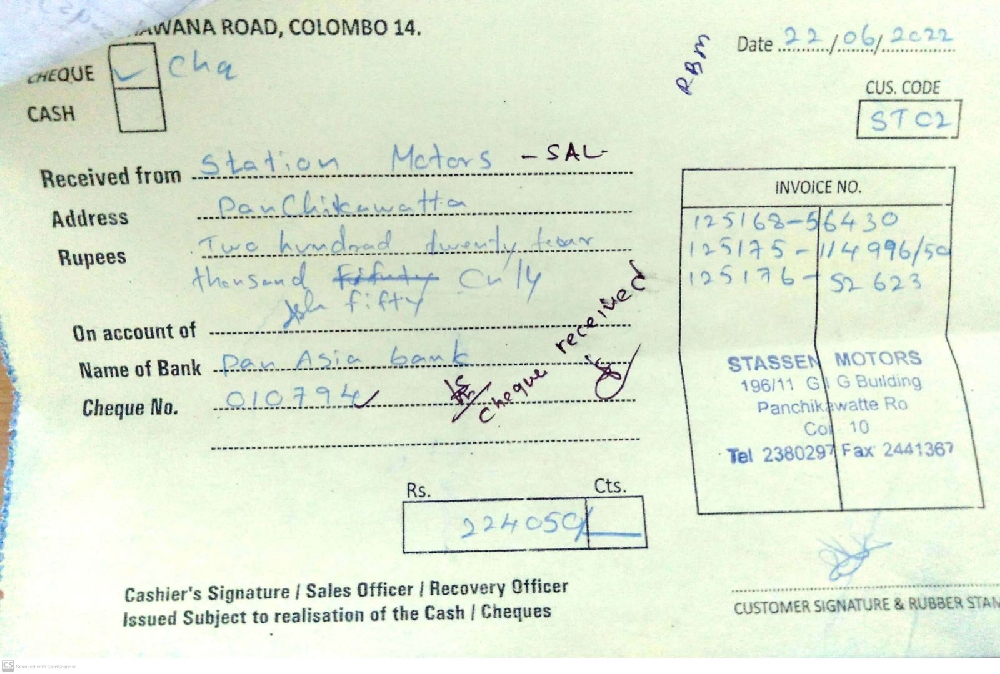 AWANA ROAD, COLOMBO 14.
Date 22/06/2022
RBM
CHEQUE ✓ Chq
CASH
CUS. CODE
STC2
Received from Station Motors - SAL
Address Panchikawatta
Rupees Two hundrad twenty four
thousand Only
fifty
On account of
Name of Bank Pan Asia bank
Cheque No. 010794
Cheque received
INVOICE NO.
125168-56430
125175-114996/50
125176-52623
STASSEN MOTORS
196/11 G G Building
Panchikawatte Ro
Col 10
Tel 2380297 Fax 2441367
Rs. Cts.
224050/
Cashier's Signature / Sales Officer / Recovery Officer
Issued Subject to realisation of the Cash / Cheques
CUSTOMER SIGNATURE & RUBBER STAM
CS